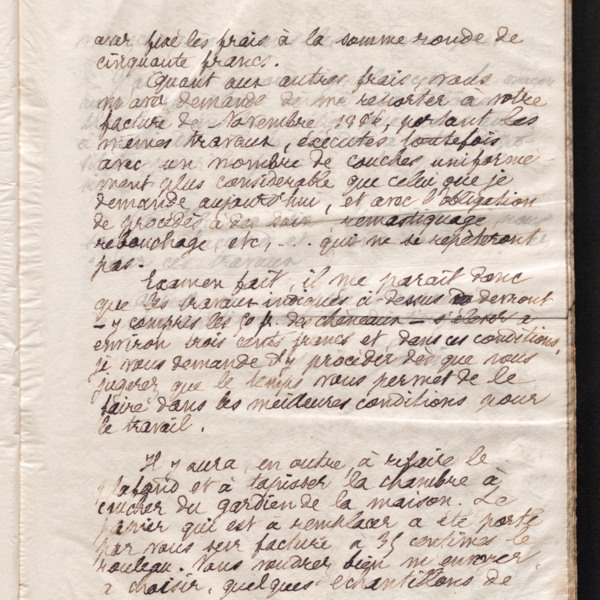 avez fixé les frais à la somme ronde de
cinquante francs.
Quant aux autres frais, vous
m'avez demandé de me reporter à votre
facture de Novembre 1886, portant les
mêmes travaux, exécutés toutefois
avec un nombre de couches uniformé-
ment plus considérable que celui que je
demande aujourd'hui, et avec l'obligation
de procéder à des remastiquage
rebouchage etc, - . qui ne se répèteront
pas.
Examen fait, il me parait donc
que les travaux indiqués ci-dessus devront
- y compris les 50 fr. des chéneaux - s'élever à
environ trois cents francs et dans ces conditions,
je vous demande d'y procéder dès que vous
jugerez que le temps vous permet de le
faire dans les meilleures conditions pour
le travail.
Il y aura, en outre, à refaire le
plafond et à tapisser la chambre à
coucher du gardien de la maison. Le
papier qui est à remplacer a été porté
par vous sur facture à 35 centimes le
rouleau. Vous voudrez bien m'envoyer,
à choisir, quelques échantillons de